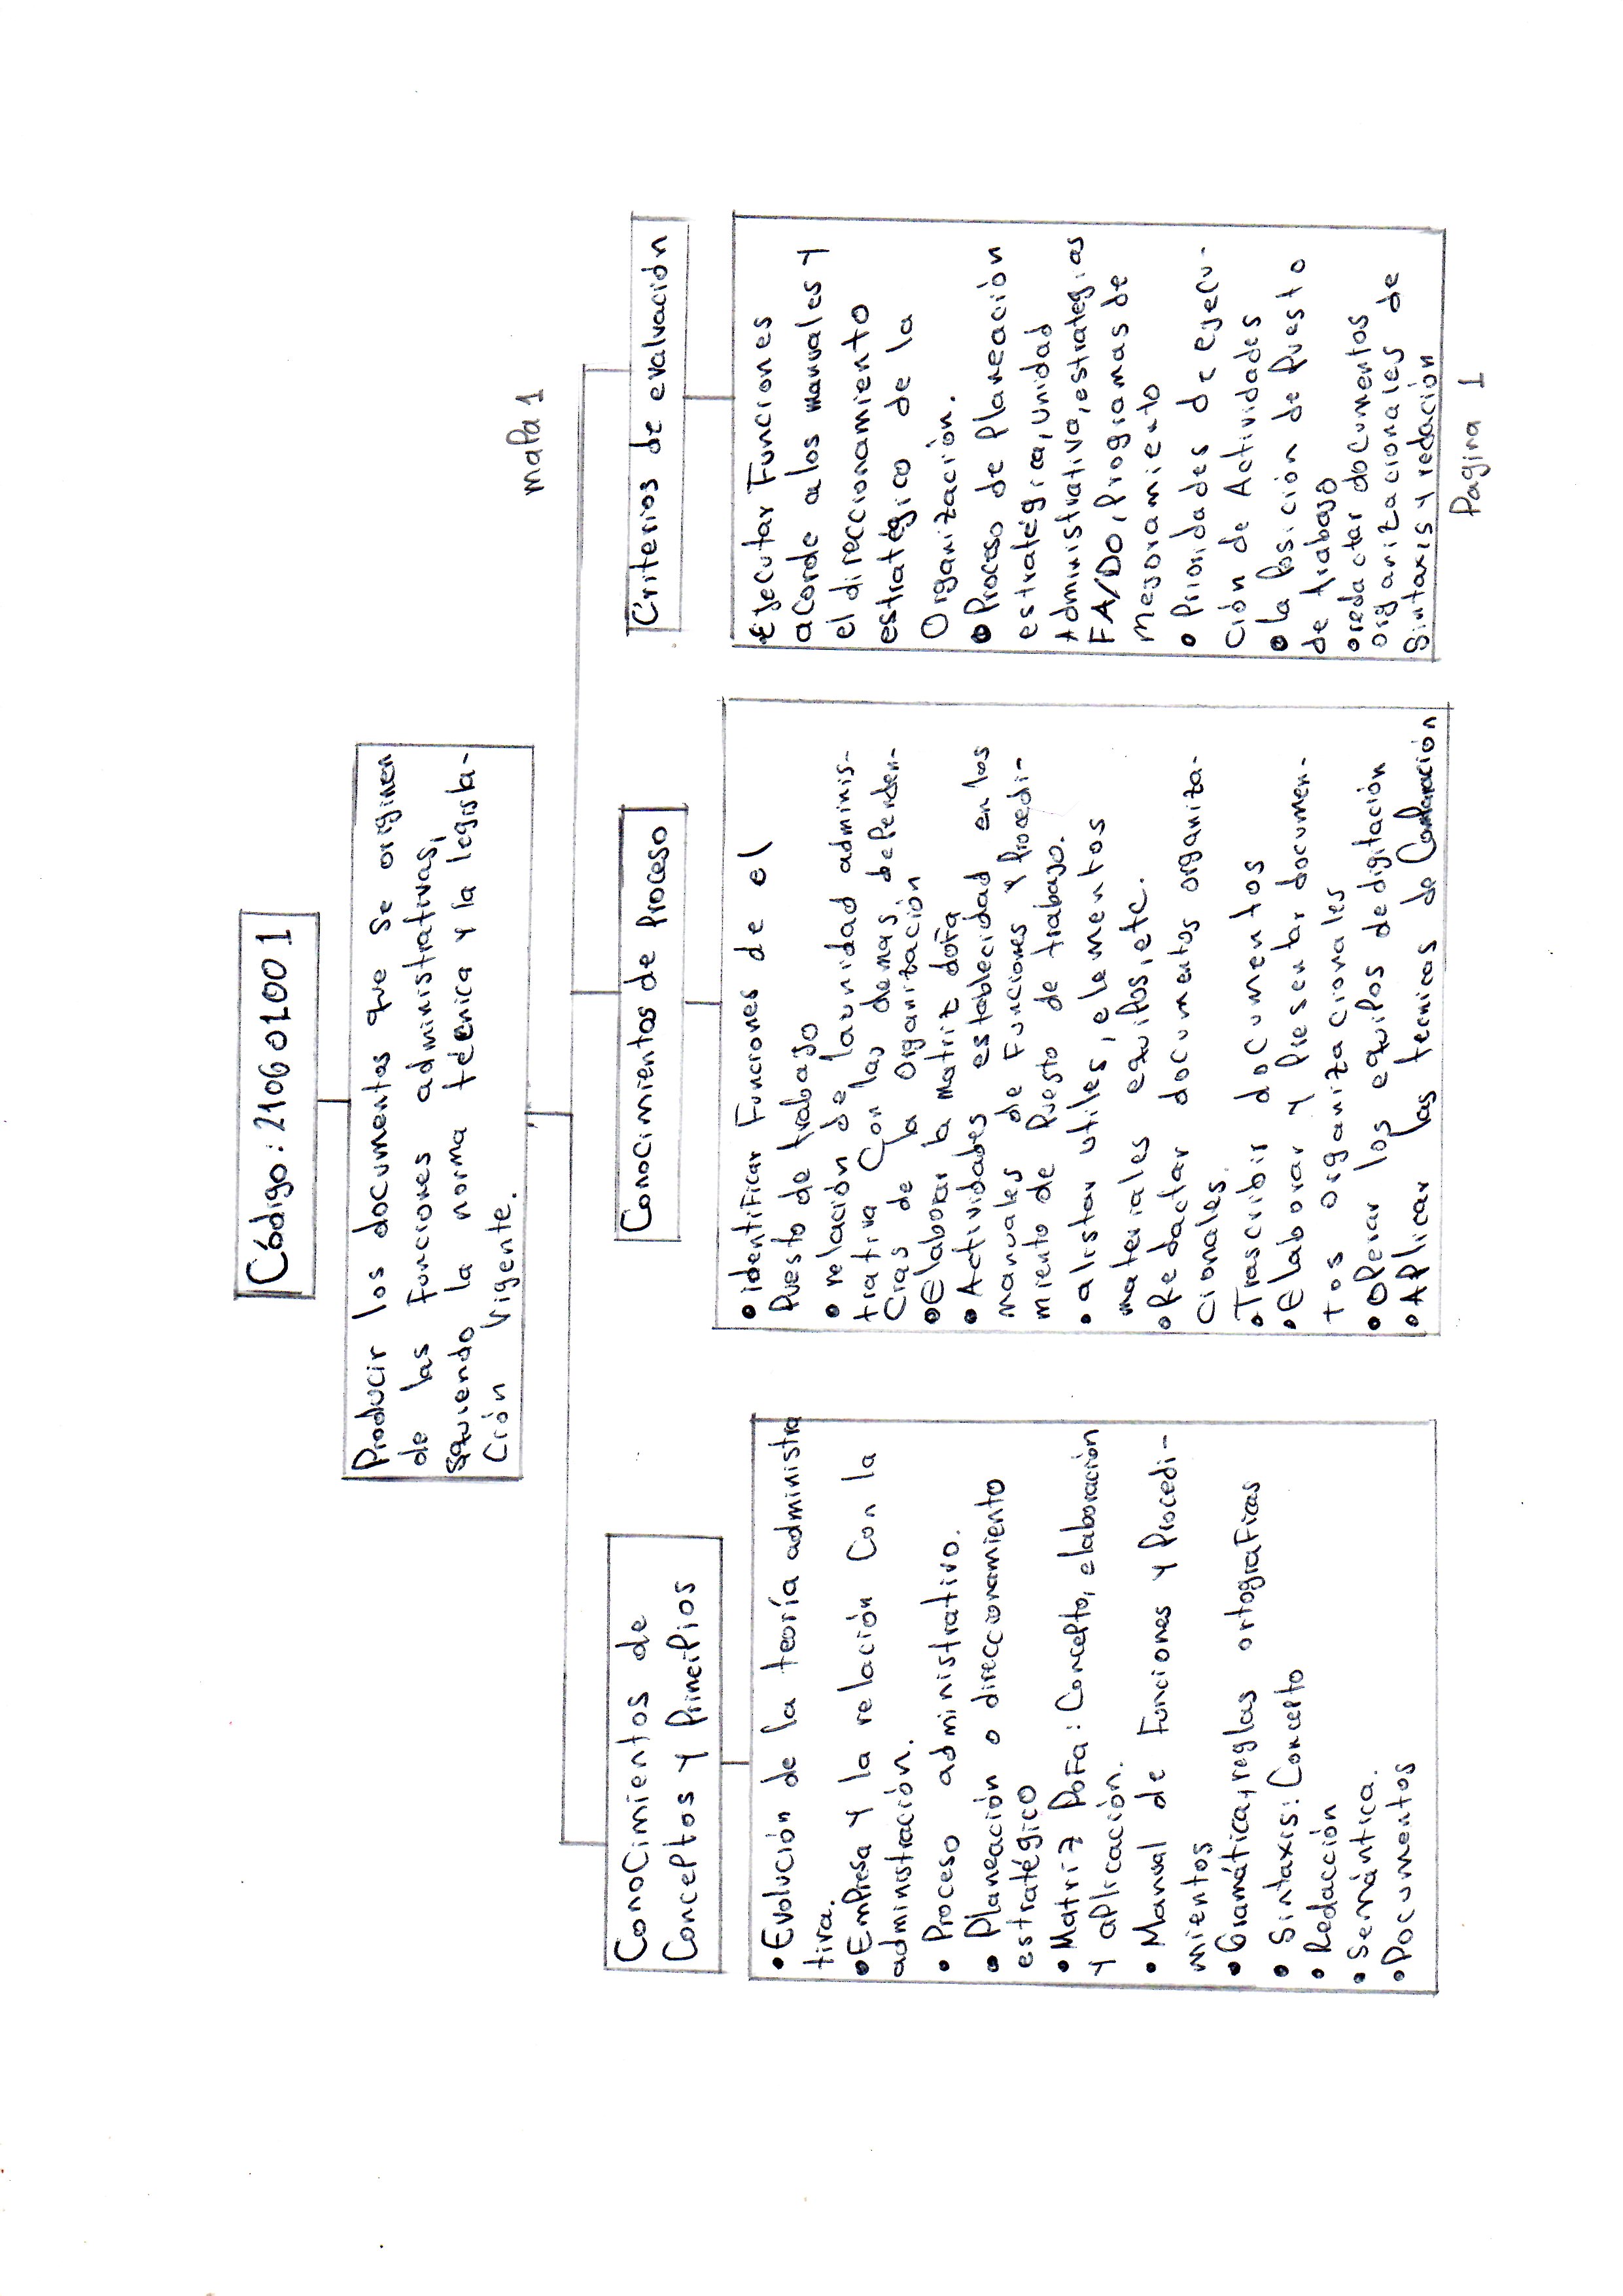 mapa 1
Código: 210601001
Producir los documentos que se originen
de las funciones administrativas,
siguiendo la norma técnica y la legisla-
ción vigente.
Conocimientos de
Conceptos y Principios
• Evolución de la teoría administra
tiva.
• Empresa y la relación con la
administración.
• Proceso administrativo.
• Planeación o direccionamiento
estratégico
• Matriz Dofa: Concepto, elaboración
y aplicación.
• Manual de Funciones y Procedi-
mientos
• Gramática, reglas ortograficas
• Sintaxis: Concepto
• Redacción
• Semántica.
• Documentos
Conocimientos de Proceso
• identificar Funciones de el
puesto de trabajo
• relación de la unidad adminis-
trativa con las demas, dependen-
cias de la organización
• Elaborar la matriz dofa
• Actividades establecidad en los
manuales de Funciones y Procedi-
miento de puesto de trabajo.
• alistar utiles, elementos
materiales equipos, etc.
• Redactar documentos organiza-
cionales.
• Trascribir documentos
• Elaborar y presentar documen-
tos organizacionales
• Operar los equipos de digitación
• Aplicar las tecnicas de Comparación
Criterios de evaluación
• Ejecutar Funciones
acorde a los manuales y
el direccionamiento
estratégico de la
Organización.
• Proceso de planeación
estratégica, unidad
Administrativa, estrategias
FA/DO, Programas de
Mejoramiento
• Prioridades de ejecu-
ción de Actividades
• la posición de puesto
de trabajo
• redactar documentos
organizacionales de
Sintaxis y redación
Pagina 1